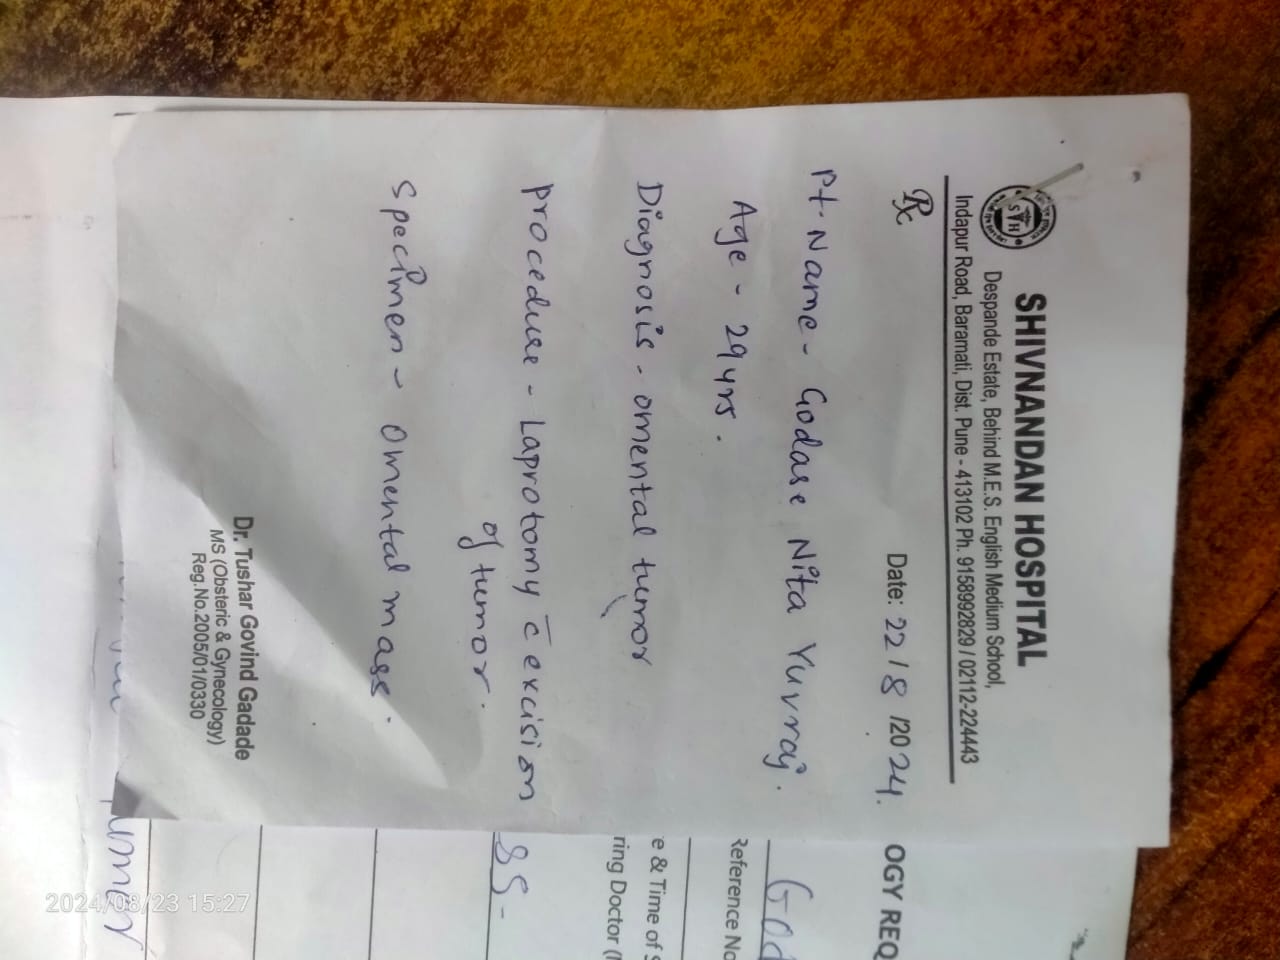 SHIVNANDAN HOSPITAL
Despande Estate, Behind M.E.S. English Medium School,
Indapur Road, Baramati, Dist. Pune - 413102 Ph. 9158992829 / 02112-224443
SVH
Rx
Date: 22/8/2024.
Pt. Name - Godase Nita Yuvraj.
Age - 29 yrs.
Diagnosis - omental tumor
procedure - Laprotomy c̄ excision
of tumor.
Specimen - Omental mass.
Dr. Tushar Govind Gadade
MS (Obsteric & Gynecology)
Reg.No.2005/01/0330
OGY REQ
God
Reference No
e & Time of S
ring Doctor (
2024/08/23 15:27